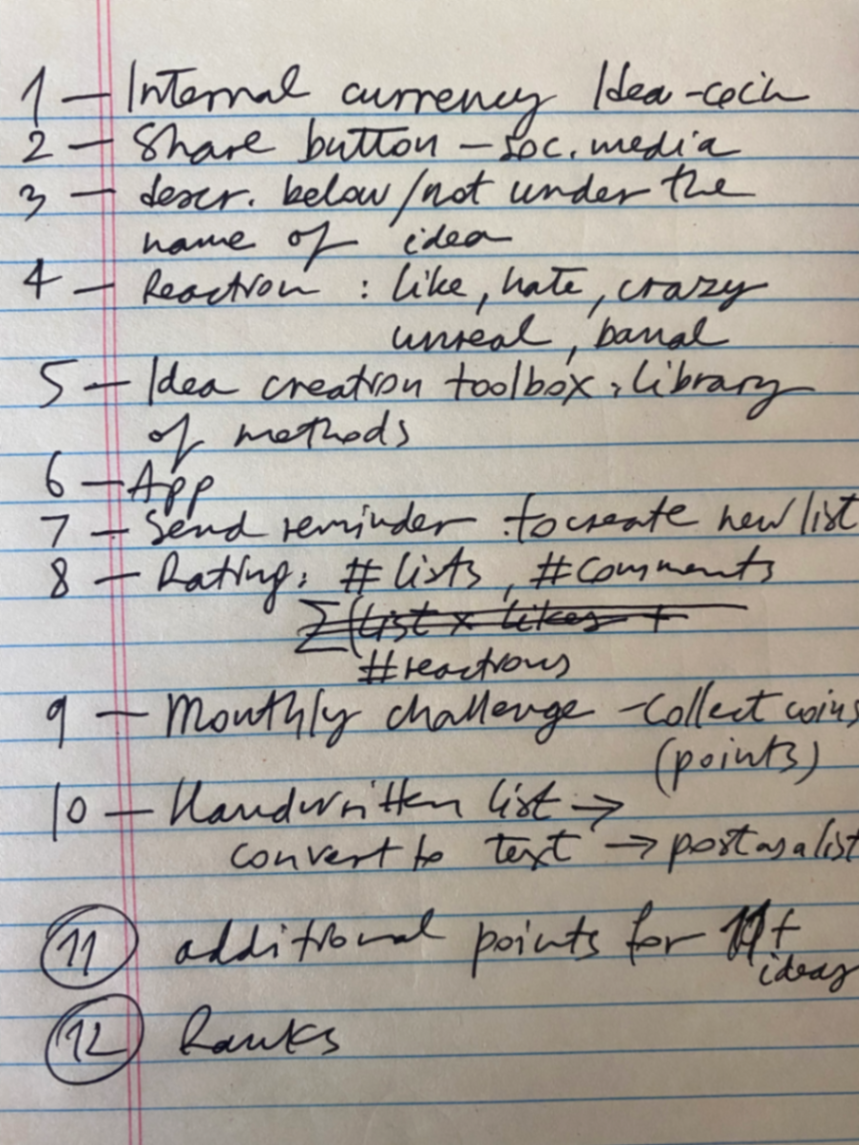 1 — Internal currency Idea-coin
2 — Share button – soc. media
3 — descr. below/not under the
name of idea
4 — Reaction : like, hate, crazy
unreal, banal
5 — Idea creation toolbox, library
of methods
6 — App
7 — Send reminder to create new list
8 — Rating: # lists, # comments
Σ(list x likes +
# reactions
9 — Monthly challenge – collect coins
(points)
10 — Handwritten list →
convert to text → post as a list
11 additional points for 11+
ideas
12 Ranks